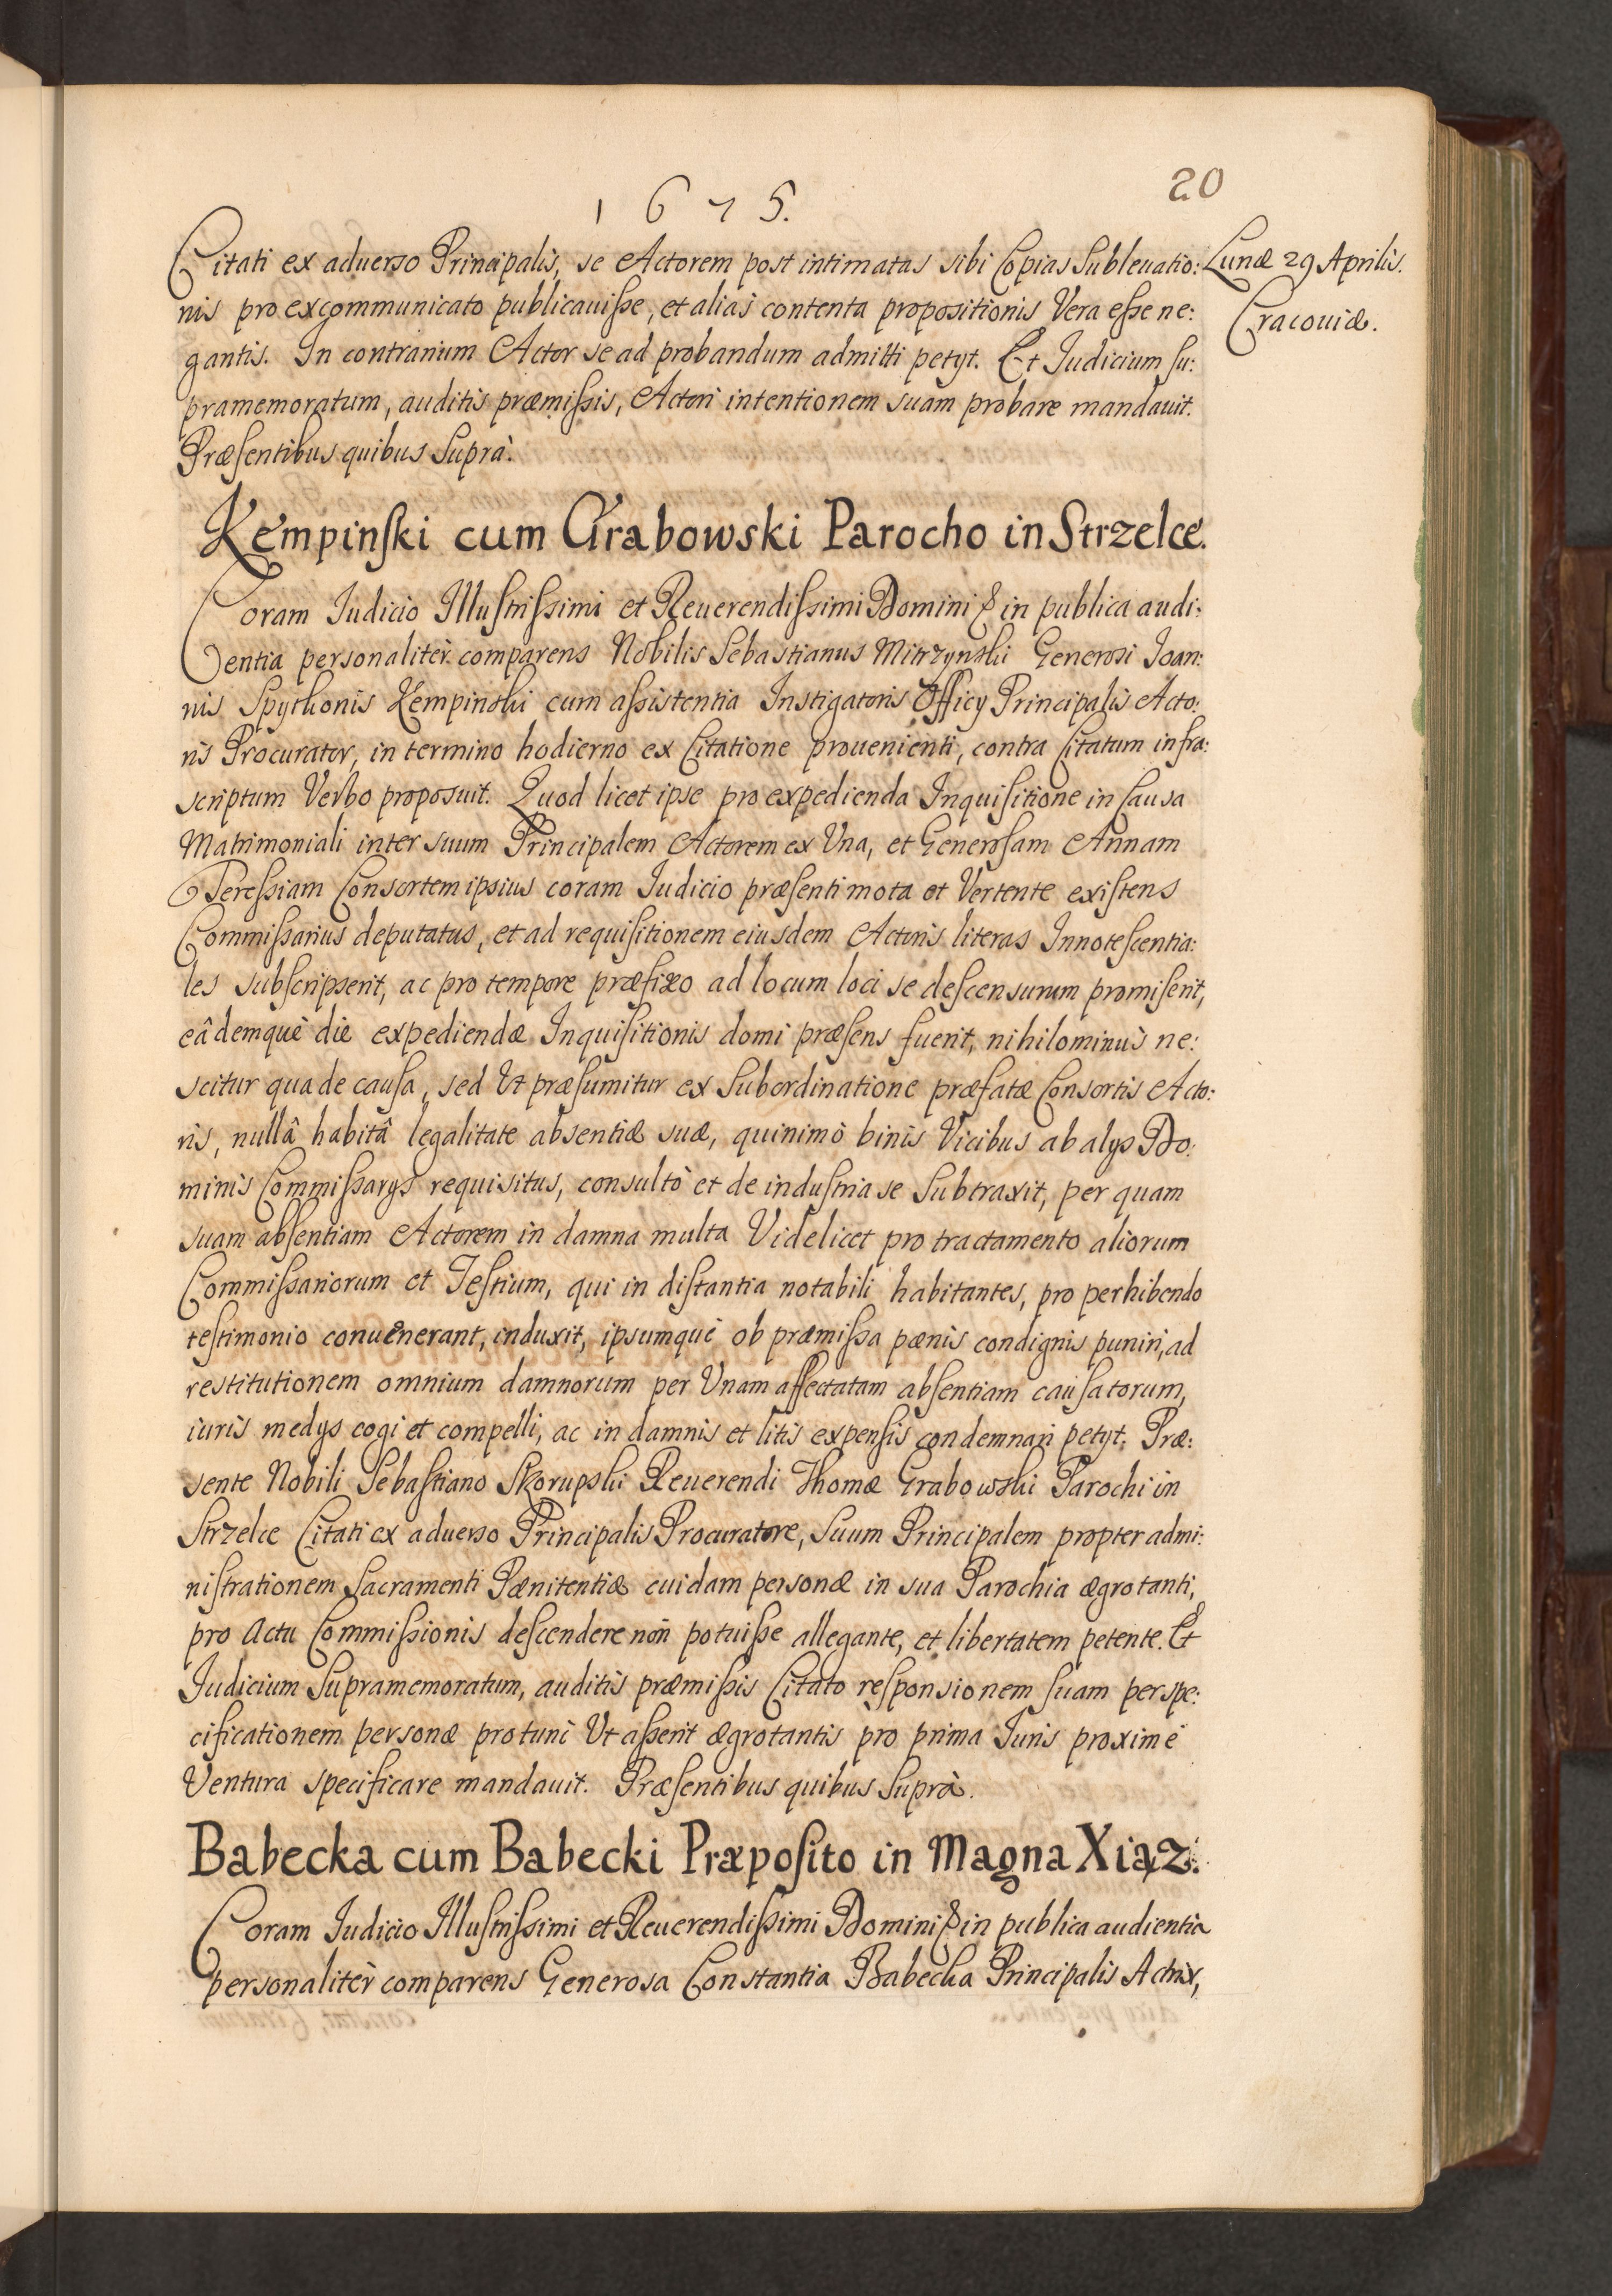 20
1675.
Citati ex aduerso Principalis, se Actorem post intimatas sibi Copias Subleuatio:
nis pro excommunicato publicauisse, et alias contenta propositionis Vera esse ne:
gantis. In contrarium Actor se ad probandum admitti petyt. Et Judicium su:
pramemoratum, auditis præmissis, Actori intentionem suam probare mandauit.
Præsentibus quibus Suprà.
Lunæ 29 Aprilis.
Cracouiæ.
Kempinski cum Grabowski Parocho in Strzelce.
Coram Judicio Illustrissimi et Reuerendissimi Domini & in publica audi:
entia personalitèr comparens Nobilis Sebastianus Mitrzynski Generosi Joan:
nis Spythonis Kempinski cum assistentia Instigatoris Officy Principalis Acto:
ris Procurator, in termino hodierno ex Citatione prouenienti, contra Citatum infra:
scriptum Verbo proposuit. Quod licet ipse pro expedienda Inquisitione in Causa
Matrimoniali inter suum Principalem Actorem ex Una, et Generosam Annam
Teressiam Consortem ipsius coram Judicio præsenti mota et Vertente existens
Commissarius deputatus, et ad requisitionem eiusdem Actoris literas Innotescentia:
les subscripserit, ac pro tempore præfixo ad locum loci se descensurum promiserit,
eâdemquè die expediendæ Inquisitionis domi præsens fuerit, nihilominùs ne:
scitur qua de causa, sed Ut præsumitur ex Subordinatione præfatæ Consortis Acto:
ris, nullâ habitâ legalitate absentiæ suæ, quinimò binis Vicibus ab alys Do:
minis Commissarys requisitus, consultò et de industria se Subtraxit, per quam
suam absentiam Actorem in damna multa Videlicet pro tractamento aliorum
Commissariorum et Testium, qui in distantia notabili habitantes, pro perhibendo
testimonio conuenerant, induxit, ipsumquè ob præmissa pænis condignis puniri, ad
restitutionem omnium damnorum per Unam affectatam absentiam causatorum,
iuris medys cogi et compelli, ac in damnis et litis expensis condemnari petyt. Præ:
sente Nobili Sebastiano Skorupski Reuerendi Thomæ Grabowski Parochi in
Strzelce Citati ex aduerso Principalis Procuratore, Suum Principalem propter admi:
nistrationem Sacramenti Pænitentiæ cuidam personæ in sua Parochia ægrotanti,
pro Actu Commissionis descendere non potuisse allegante, et libertatem petente. Et
Judicium Supramemoratum, auditis præmissis Citato responsionem suam per spe:
cificationem personæ pro tunc Ut asserit ægrotantis pro prima Juris proximè
Ventura specificare mandauit. Præsentibus quibus Suprà.
Babecka cum Babecki Præposito in Magna Xiąz.
Coram Judicio Illustrissimi et Reuerendissimi Domini & in publica audientia
personalitèr comparens Generosa Constantia Babecka Principalis Actrix,